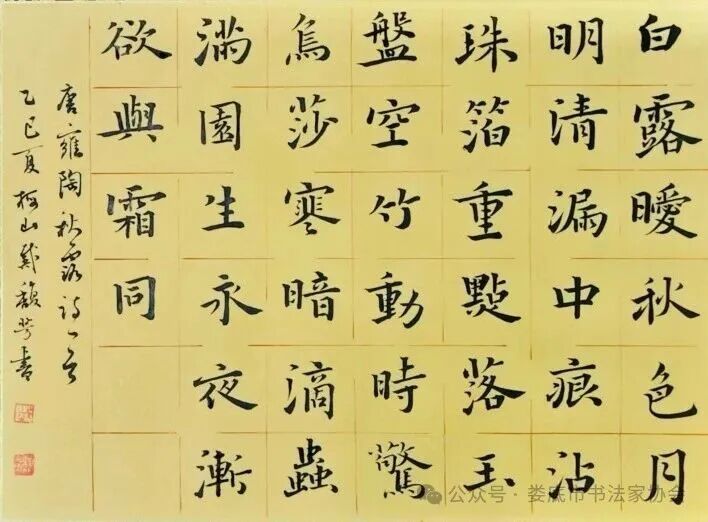 白露曖秋色月
明清漏中痕沾
珠箔重點落玉
盤空竹動時驚
鳥莎寒暗滴蟲
滿園生永夜漸
欲與霜同
唐雍陶秋露詩一首
乙巳夏梅山戴書
公众号·娄底市书法家协会